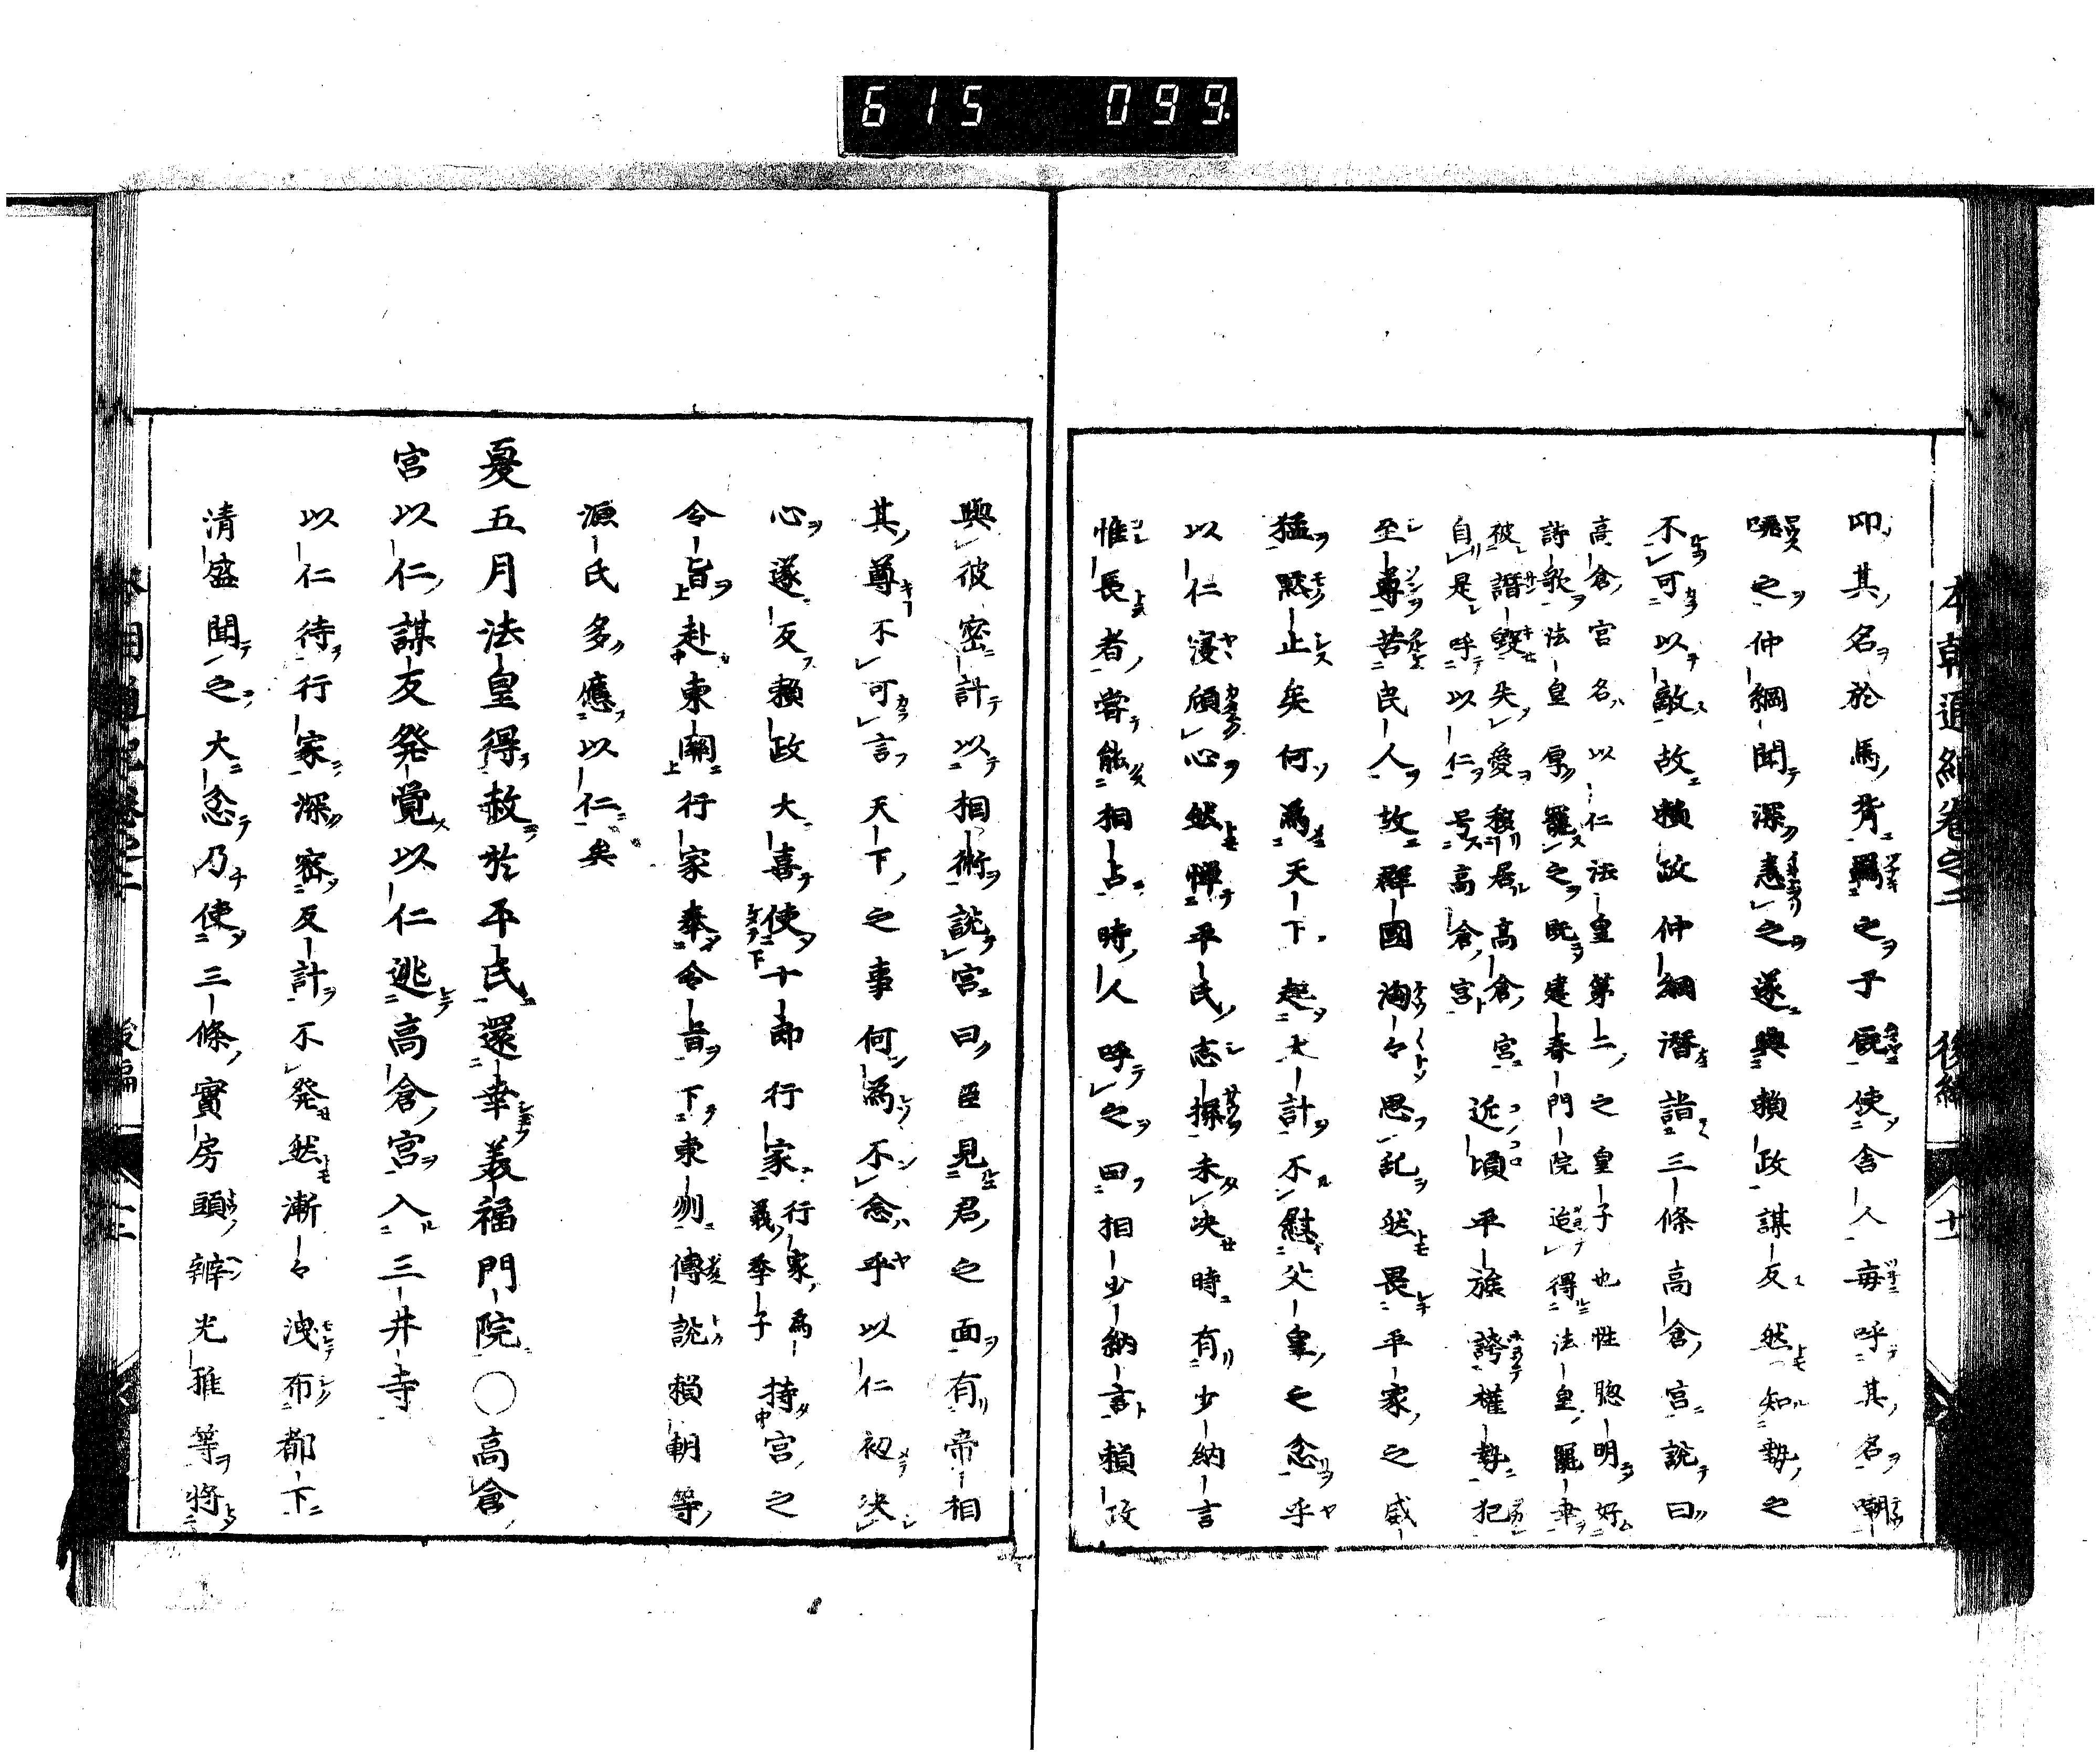 615 099.
本朝通紀巻之二 後編 十一
印其名於馬背羈之于厩使舎人毎呼其名嘲
哢之仲綱聞深恚之遂與頼政謀反然知勢之
不可以敵故頼政仲綱潜詣三條高倉宮説曰
高倉宮名以仁法皇第二之皇子也性聡明好
詩歌法皇厚寵之既建春門院迨得法皇寵幸
彼譖毀失愛移居高倉宮
自是呼以仁号高倉宮
近頃平族誇權勢犯
至尊苦民人故群國洶々思乱然畏平家之威
猛黙止矣何為天下起大計不慰父皇之念乎
以仁寝頗心然憚平氏志操未决時有少納言
惟長者嘗能相占時人呼之曰相少納言頼政
與彼密計以相術説宮曰臣見君之面有帝相
其尊不可言天下之事何為不念乎以仁初决
心遂反頼政大喜使十郎行家
行家為
義季子
持宮之
令旨赴東關行家奉令旨下東州傳説頼朝等
源氏多應以仁矣
夏五月法皇得赦於平氏還幸美福門院○高倉
宮以仁謀反発覚以仁逃高倉宮入三井寺
以仁待行家深密反計不発然漸々洩布都下
清盛聞之大念乃使三條實房頭辨光雅等将